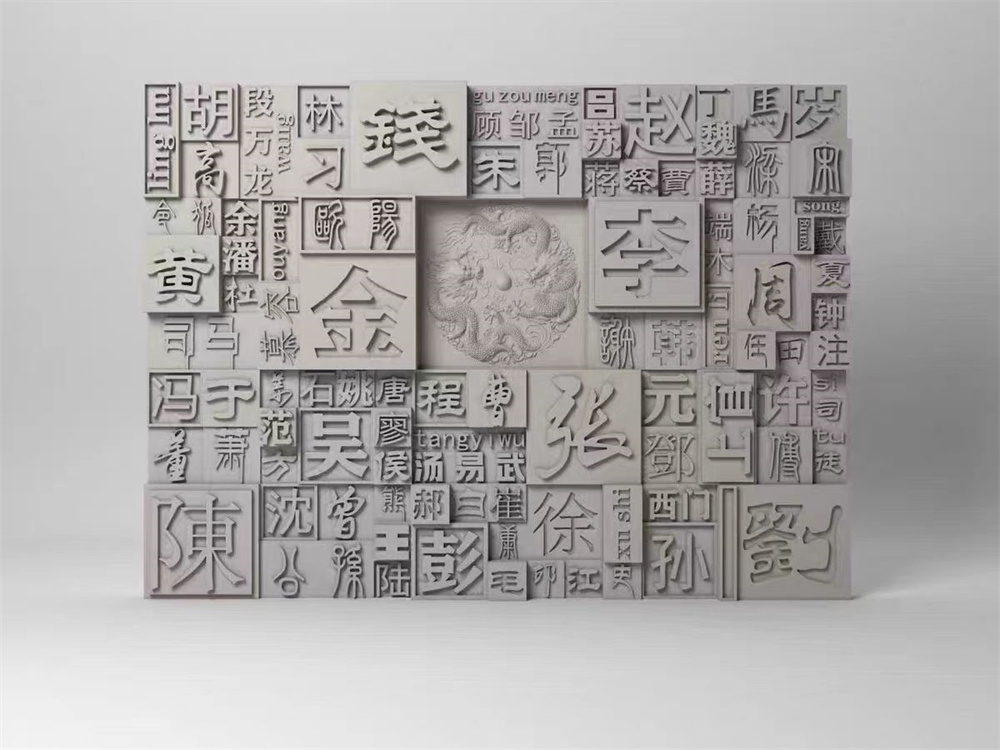 胡
段
林
錢
gu zou meng
吕
赵
丁
馬
岁
万
顾 邹 孟
苏
魏
高
龙
习
朱
郭
蒋 蔡 賈
薛
梁
宋
余
歐 陽
李
端
杨
song
戴
黄
潘
木
杜
金
周
夏
钟
司 马
謝
韩
ren
任 田
注
冯 于
石 姚 唐
程
曹
张
元
许
si
司
范
吴
廖
tang yi wu
鄧
tu
徒
董
萧
方
侯
汤 易 武
傅
陳
沈
曾
熊
郝
白 崔
徐
xu shi
西门
劉
公
孫
王
陆
彭
肃
毛
江
史
孙